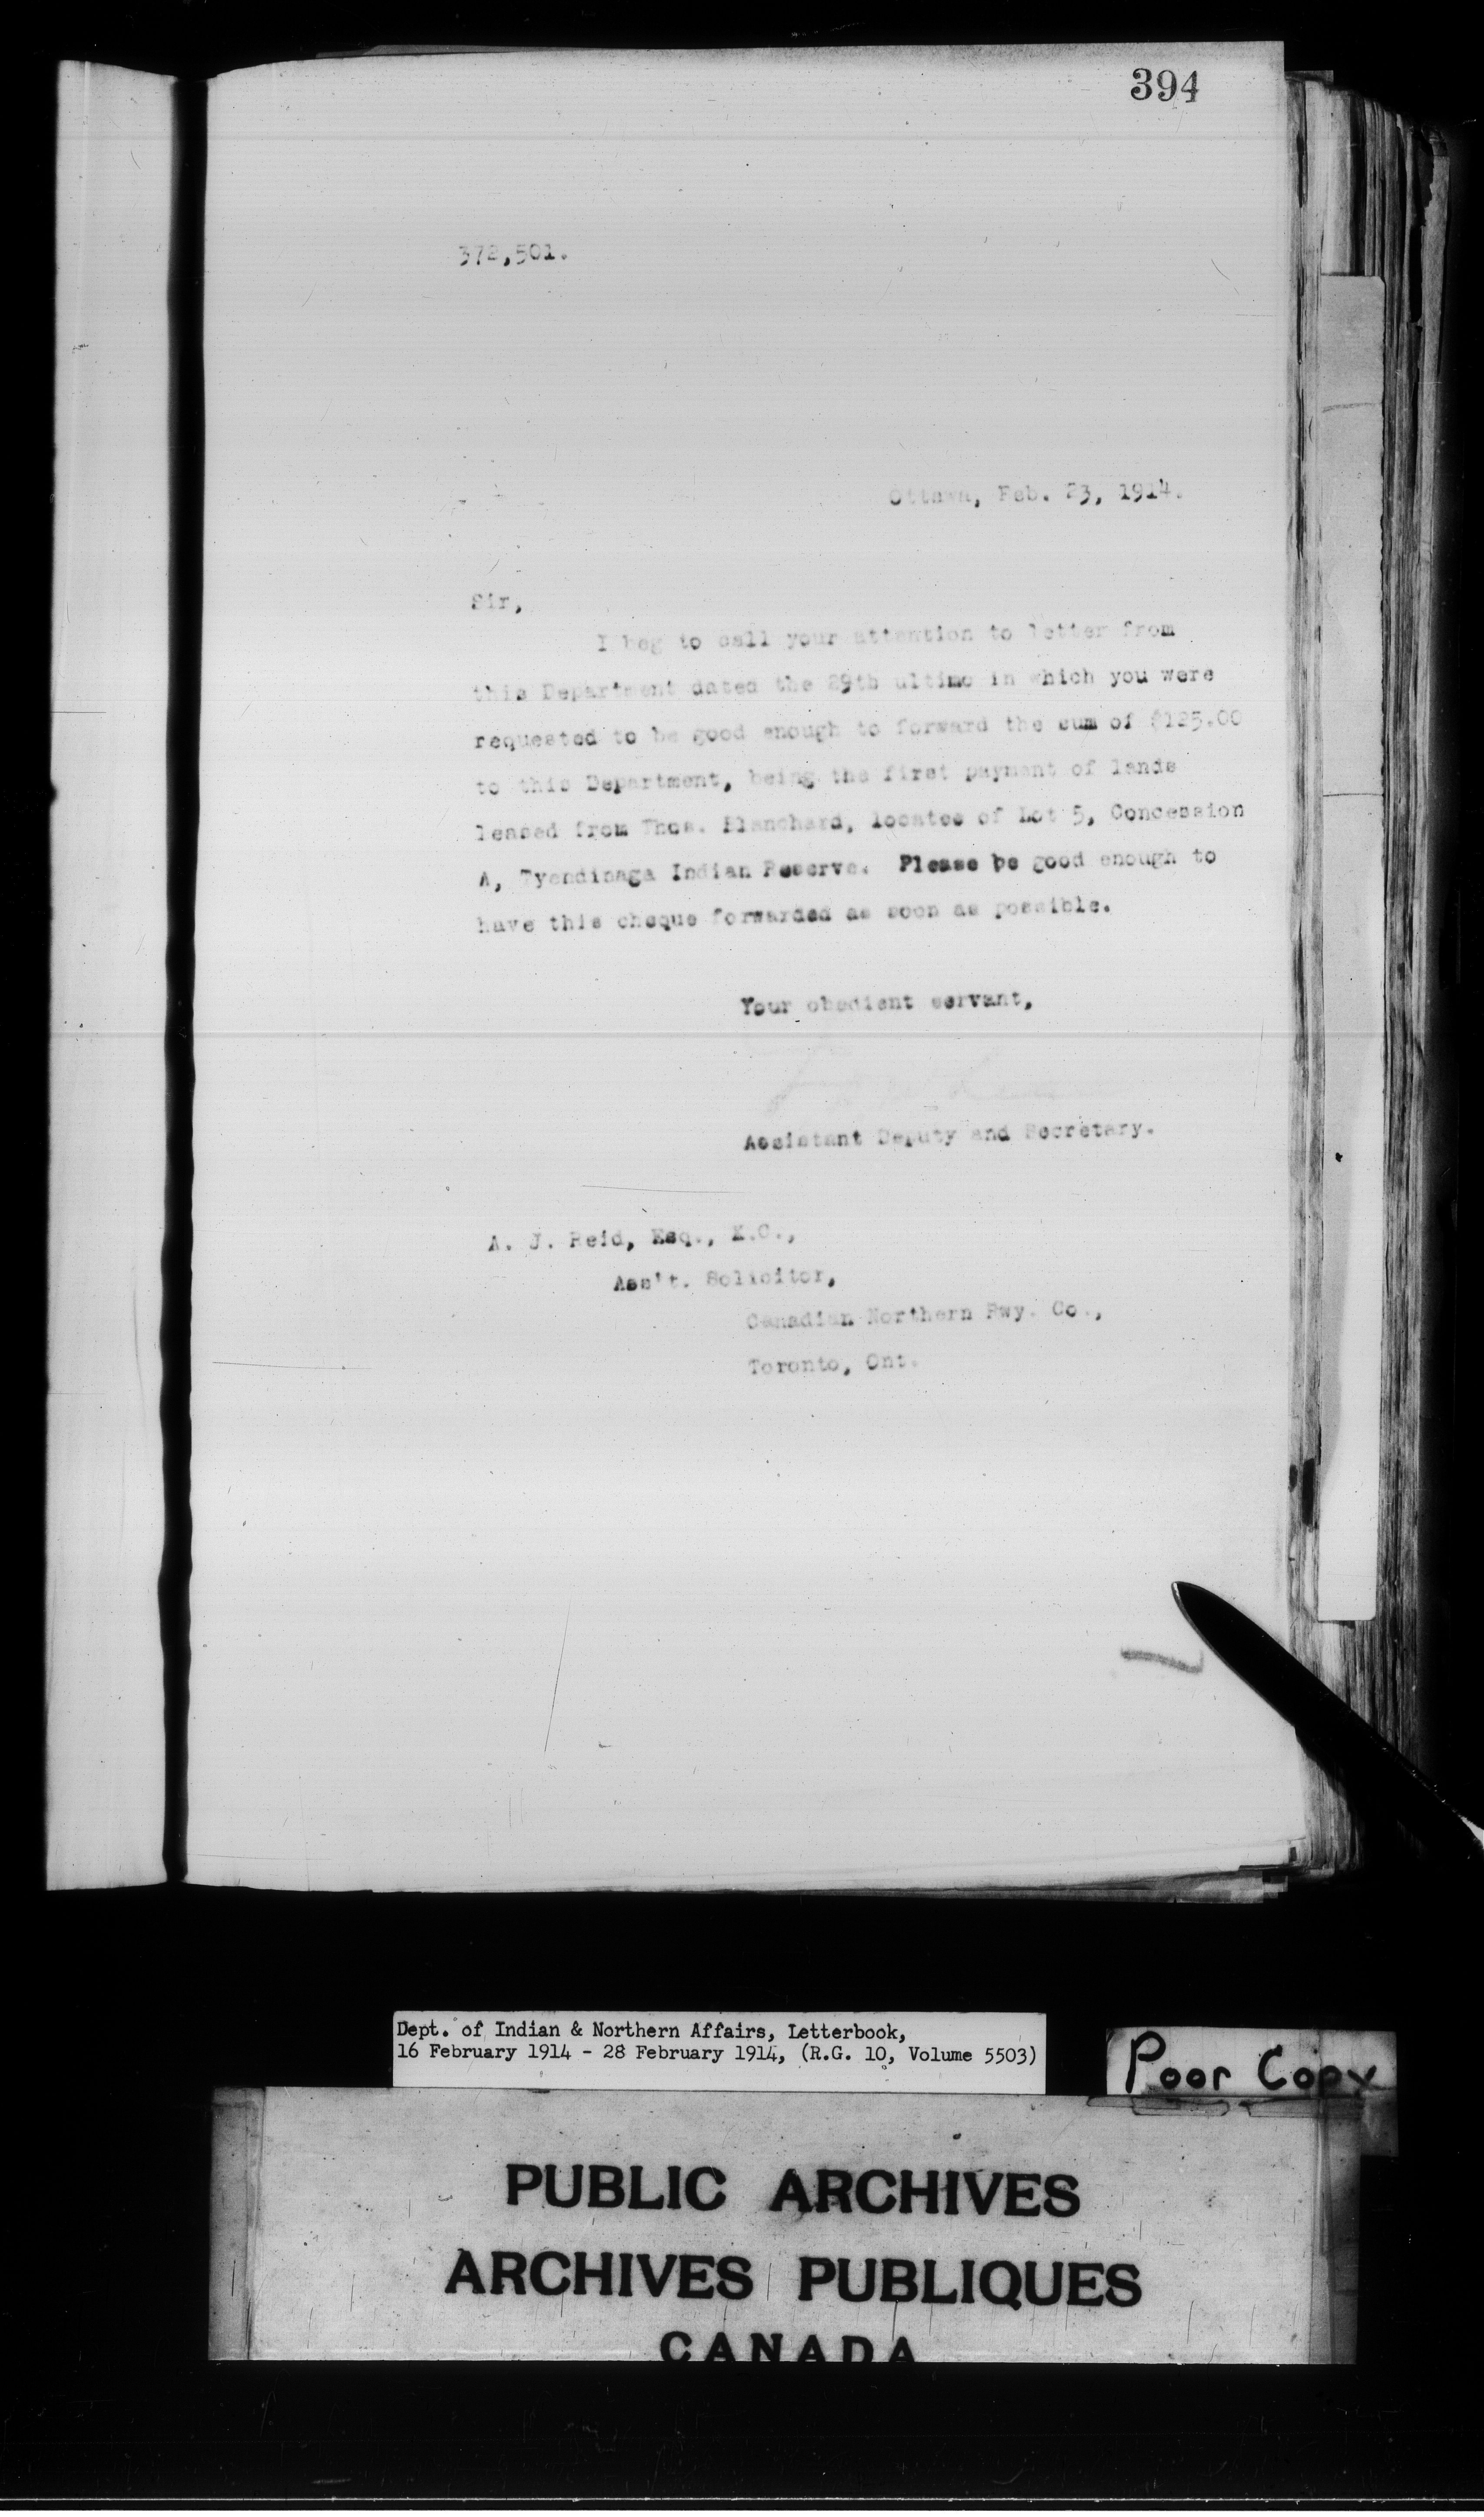 394
372,501.
Ottawa, Feb. 23, 1914.
Sir,
I beg to call your attention to letter from
this Department dated the 29th ultimo in which you were
requested to be good enough to forward the sum of $125.00
to this Department, being the first payment of lands
leased from Thos. Blanchard, locatee of Lot 5, Concession
A, Tyendinaga Indian Reserve. Please be good enough to
have this cheque forwarded as soon as possible.
Your obedient servant,
Assistant Deputy and Secretary.
A. J. Reid, Esq., K.C.,
Ass't. Solicitor,
Canadian Northern Rwy. Co.,
Toronto, Ont.
Dept. of Indian & Northern Affairs, Letterbook,
16 February 1914 - 28 February 1914, (R.G. 10, Volume 5503)
Poor Copy
PUBLIC ARCHIVES
ARCHIVES PUBLIQUES
CANADA